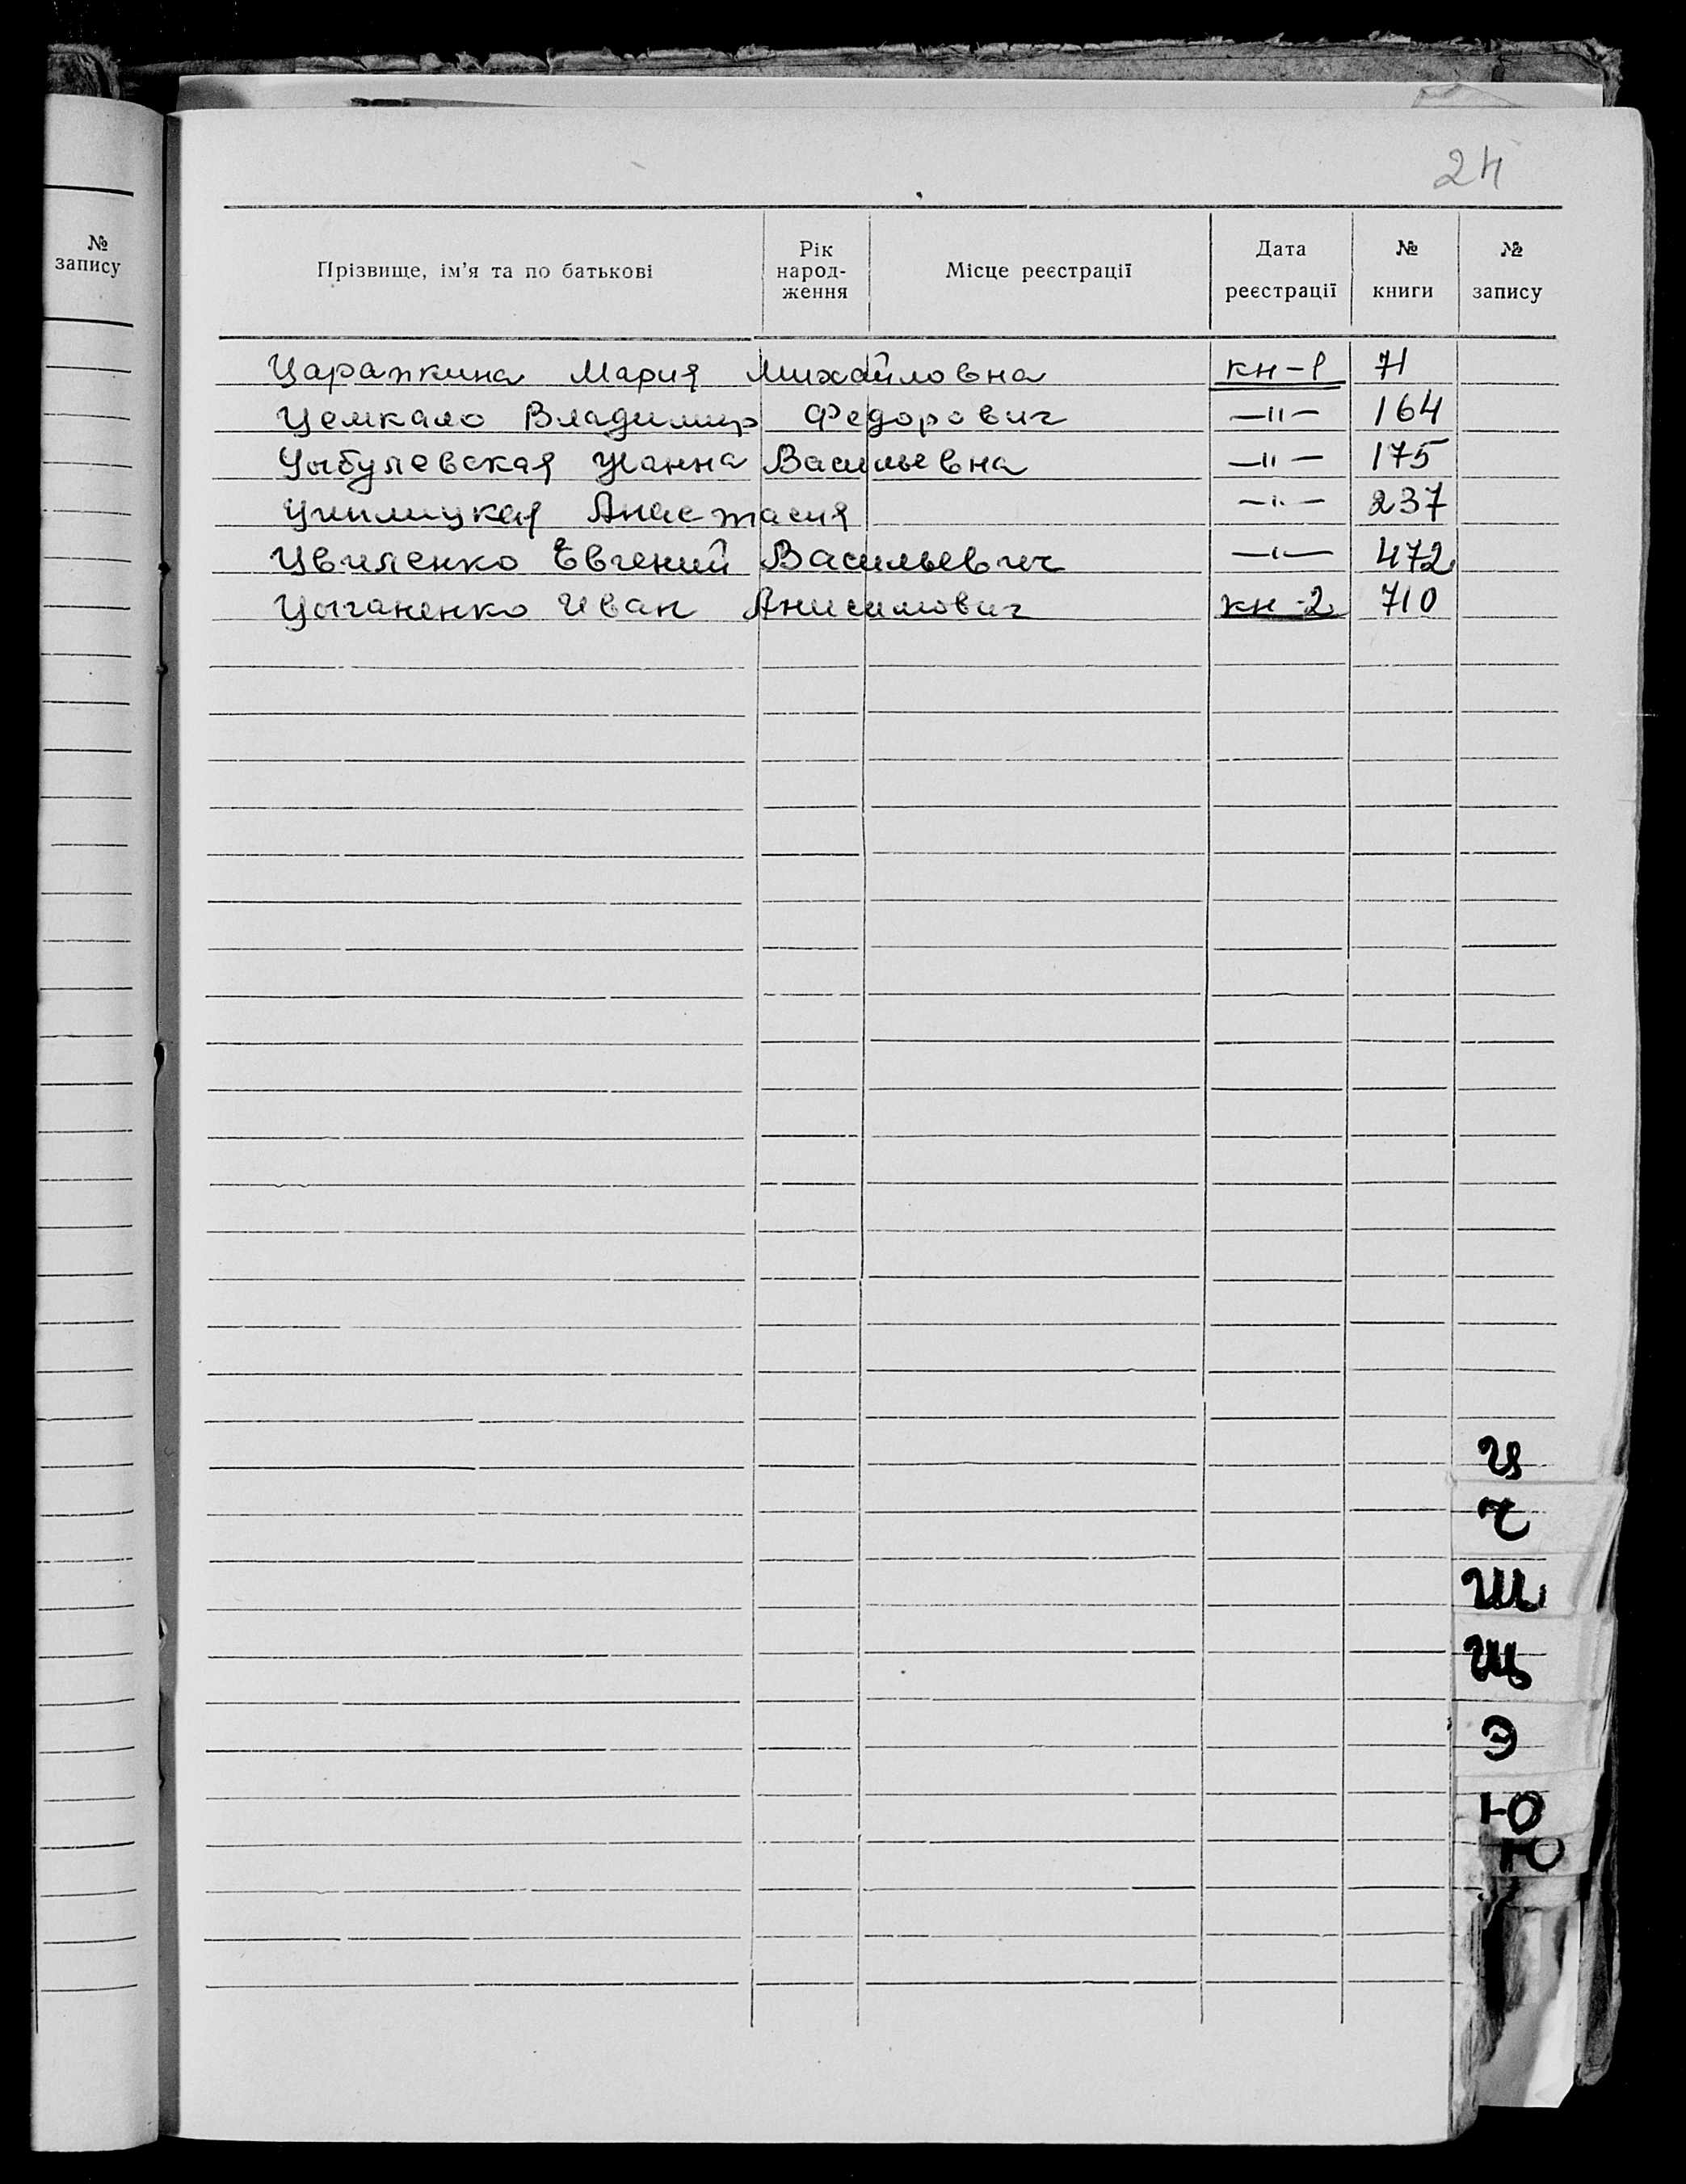 24
№ запису
Прізвище, ім'я та по батькові
Рік народ- ження
Місце реєстрації
Дата реєстрації
№ книги
№ запису
Царапкина Мария Михайловна кн-1 71
Цемкало Владимир Федорович —"— 164
Цыбулевская Жанна Васильевна —"— 175
Анастасия —"— 237
Цвиленко Евгений Васильевич —"— 472
Цыганенко Иван Анисимович кн-2 710
Ц
Ч
Ш
Щ
Э
Ю
Ю